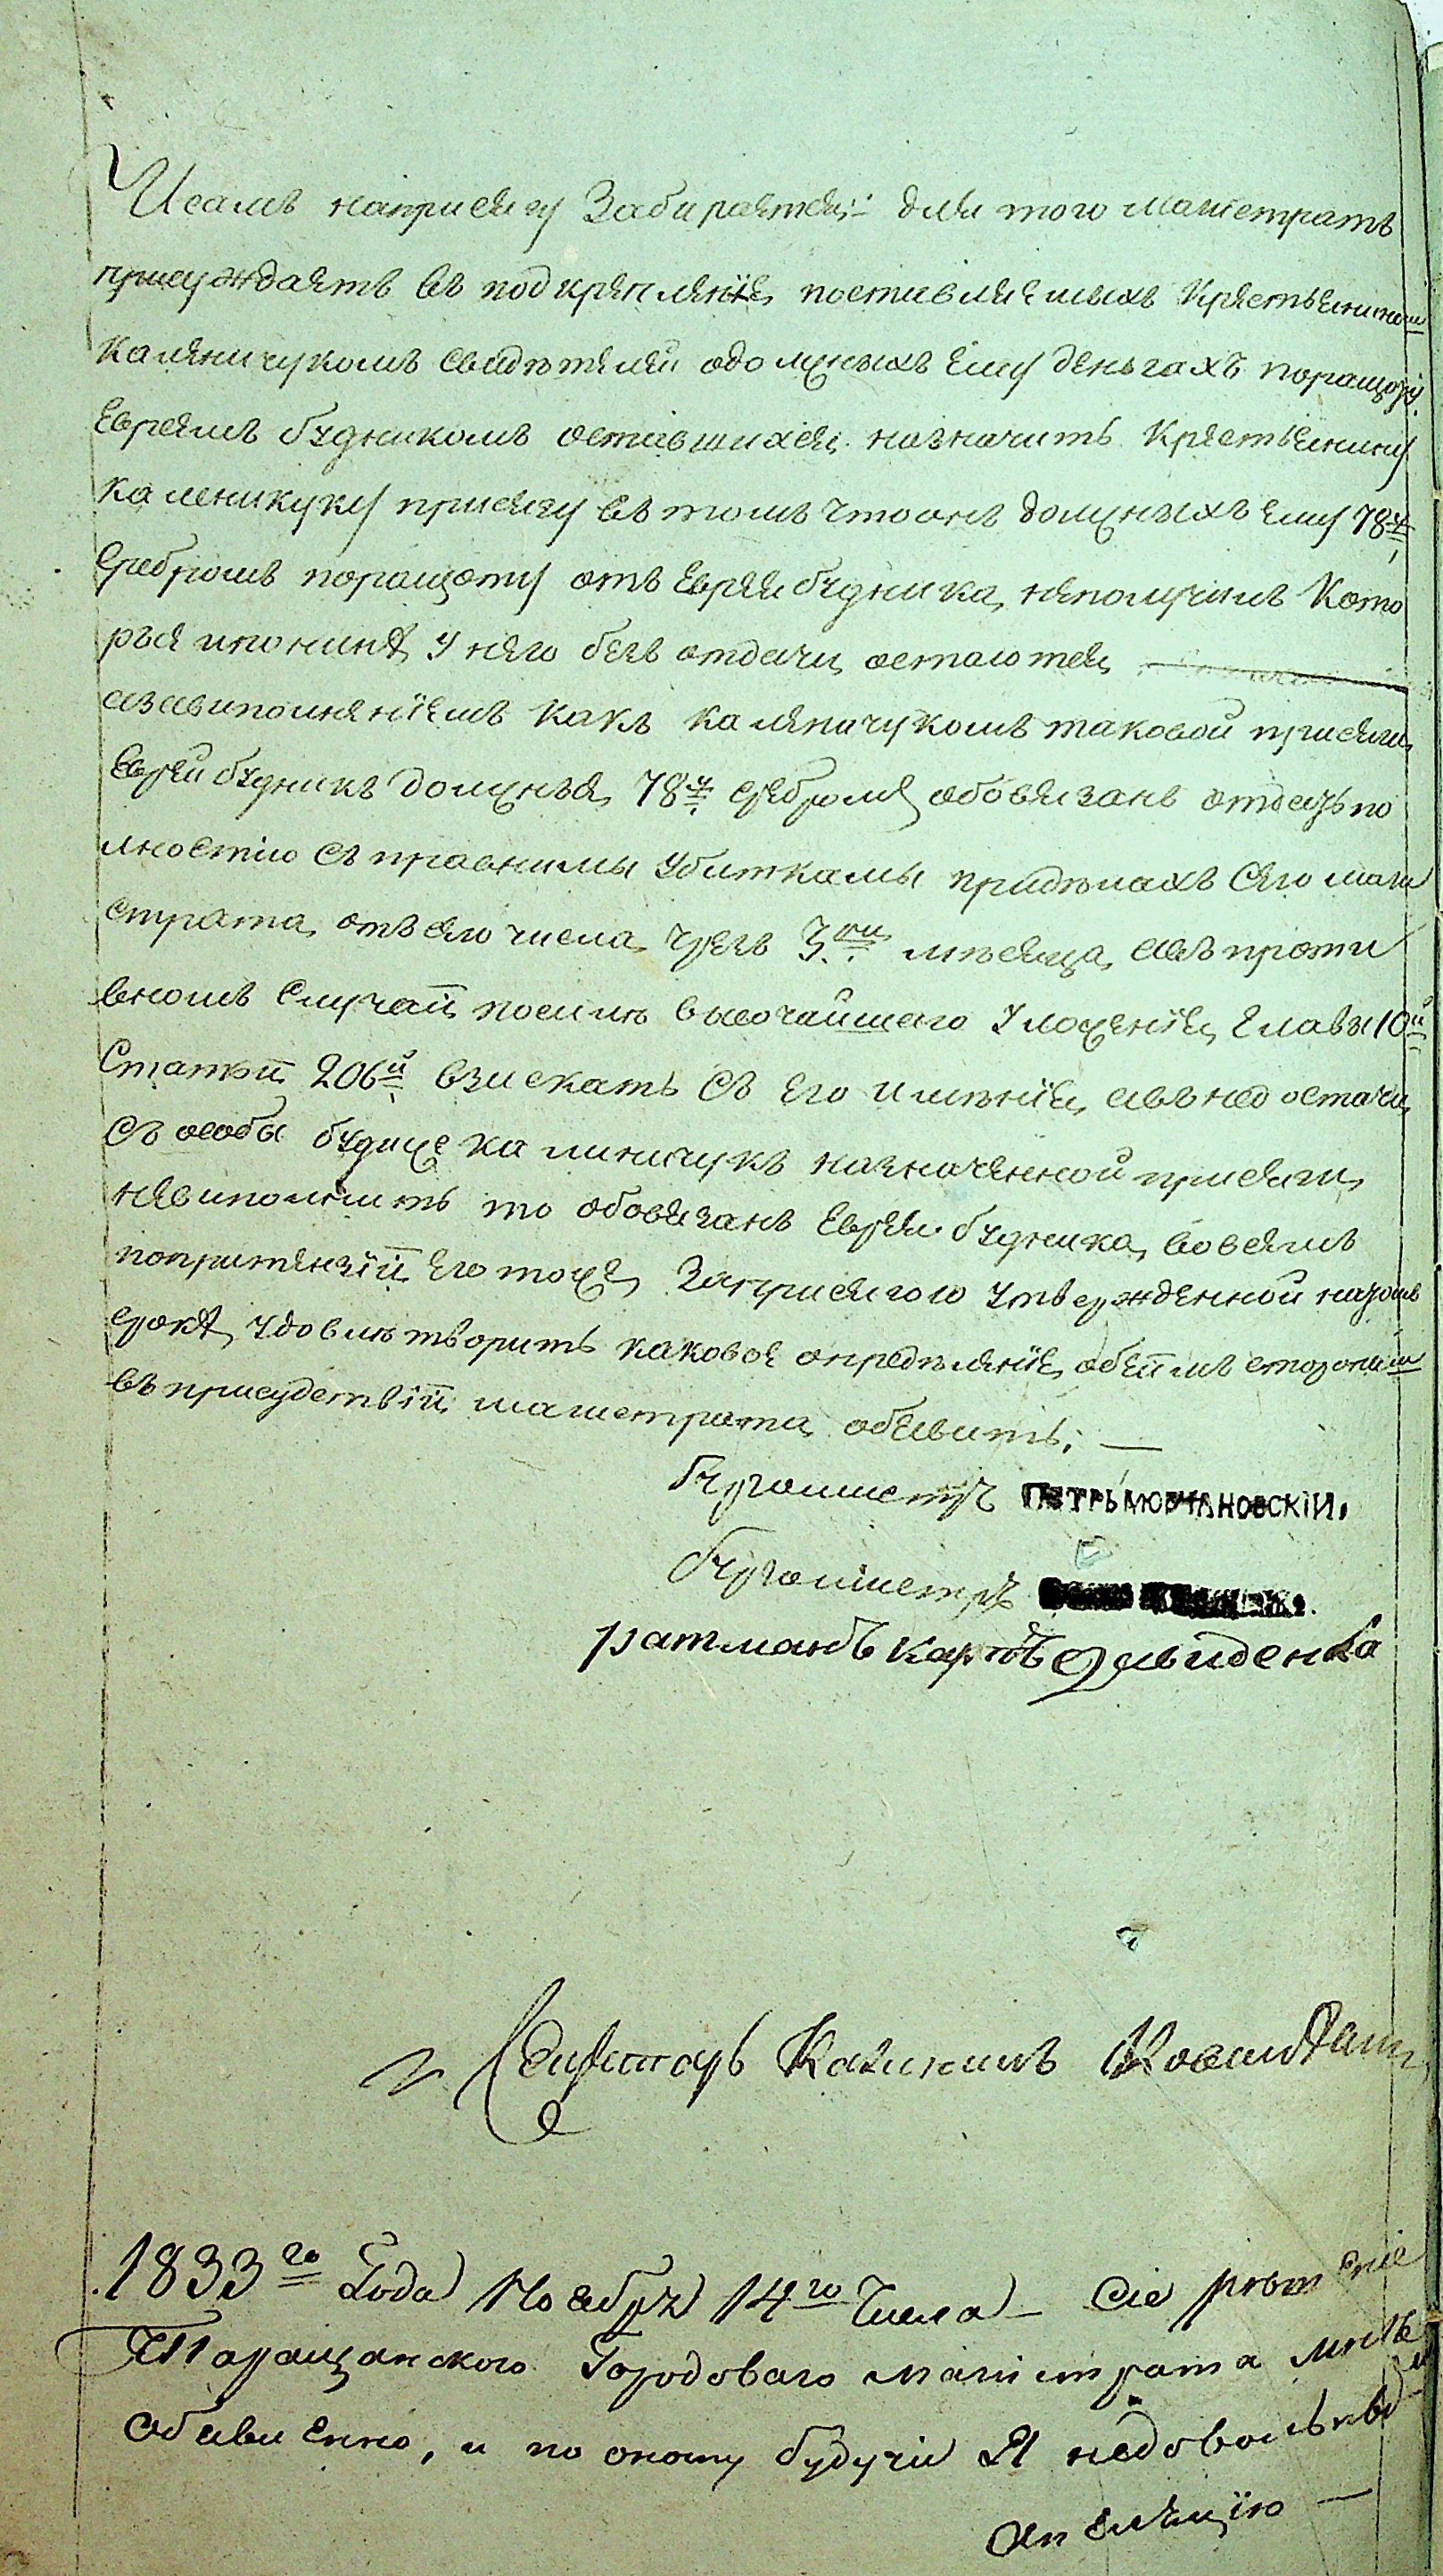 И самъ наприсягу забирается; для того магистратъ
присуждаетъ въ подкрепленіе поставляемыхъ крестьяниномъ
Каленичукомъ свидѣтелей одолжныхъ ему деньгахъ поращоту
Евреемъ будникомъ оставшихся назначить Крестьянину
каленичуку присягу въ томъ чтоонъ должныхъ ему 78ч
сребромъ поращоту отъ Еврея будника, неполучилъ Кото
рые ипонинѣ у него безъ отдачи остаются
азавиполненіемъ какъ каленичукомъ таковой присяги
Еврей будникъ должные 78ч сребромъ обовязанъ отдать по
лностію съ правнимы убиткамы придѣлахъ сего маги
страта отъ сего числа чрезъ 3ри мѣсяца, авъ проти
вномъ Случаѣ посилѣ высочайшаго Уложенія Главы 10й
Статьи 206й взискать съ его имѣнія, авъ недостачи
съ особы будеже калиничукъ назначенной присяги
невиполнитъ то обовязанъ Еврея будника вовсемъ
попритензіи его тоже Заприсягою утвержденной назомъ
срокѣ удовлѣтворить каковое опредѣленіе обеимъ сторонамъ
въ присудствіи магистрата обявить; —
Бургомистръ ПЕТРЪ МОВЧАНОВСКІЙ.
Бургомистръ
ратманъ карпъ Демиденко
Секретарь
1833го Года Ноября 14го Числа — Сіе решеніе
Таращанского Городоваго магистрата мнѣ
Обявленно, и по оному будучи я недоволенъ
апеляцію —